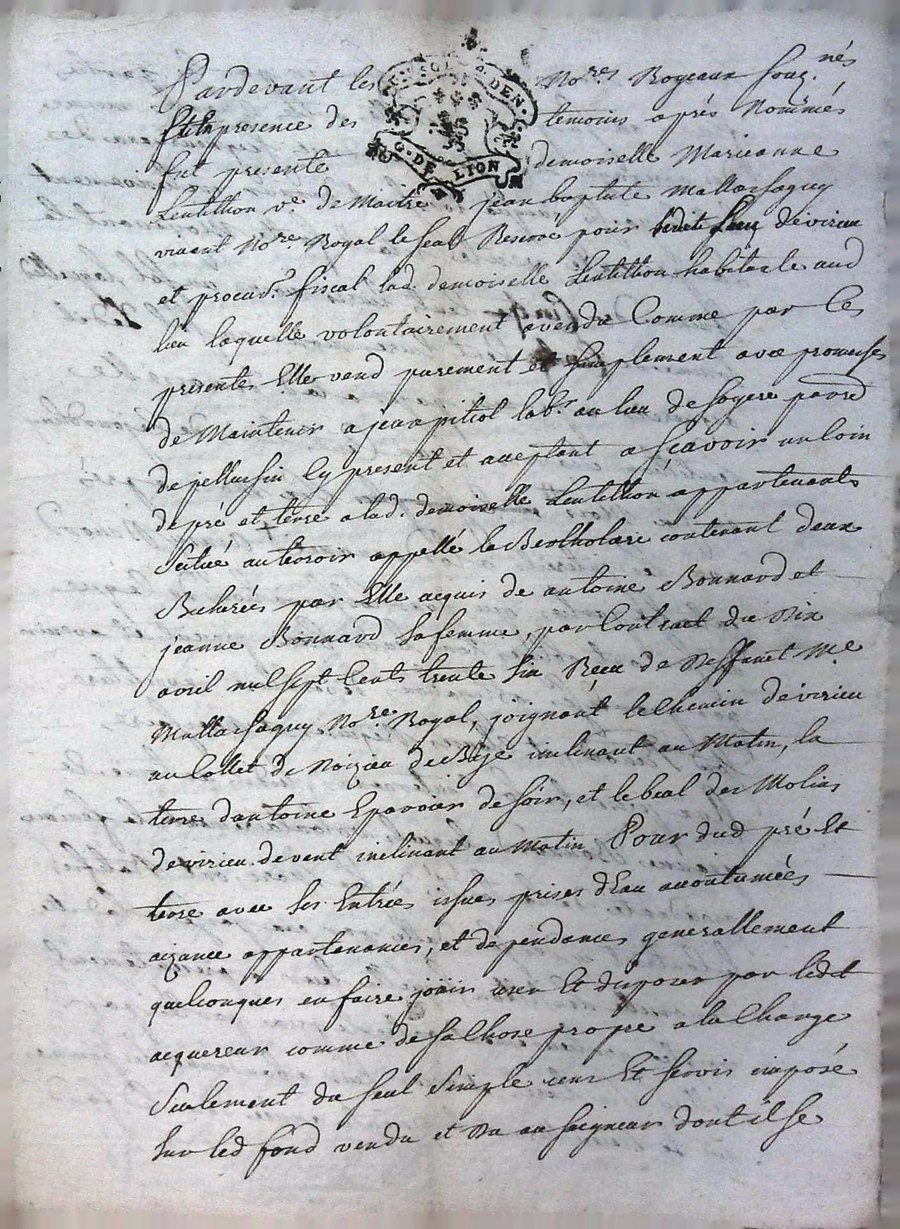 Pardevant les No.res Royeaux souz.nés
Et En presence des temoins après Nommés
fut presente demoiselle Marieanne
Lentillon v.e de Maitre jean baptiste Mallassagny
vivant No.re Royal le seul Reservé pour ledit lieu devirieu
et procur.r fiscal lad. demoiselle Lentillon habitante aud
lieu laquelle volontairement a vendu Comme par Ces
presentes Elle vend purement et simplement avec promesses
de Maintenir a jean pitiol lab.r au lieu de soyere paroisse
de pellussin Cy present et acceptant a sçavoir un Coin
de pré et terre a lad. demoiselle Lentillon appartenants
scitué au teroir appellé la Bertholare contenant deux
Bicherées par Elle acquis de antoine Bonnard et
jeanne Bonnard sa femme, par Contract du dix
avril mil sept Cents trente six Receu de deffunt M.e
Mallassagny No.re Royal, joignant le Chemin devirieu
au Collet de Roizieu de Bize inclinant au Matin, la
terre d'antoine Eparvier de soir, et le beal des Molins
devirieu de vent inclinant au Matin Pour dud pré Et
terre avec ses Entrées issues prises d'Eau acoutumées
aizance appartenances, et dependances generallement
quelconques en faire jouir user Et disposer par ledit
acquereur comme de sa Chose propre a la Charge
seulement du seul simple cens Et servis imposé
sur led fond vendu et du au seigneur dont il se
G. DE LION
DEN